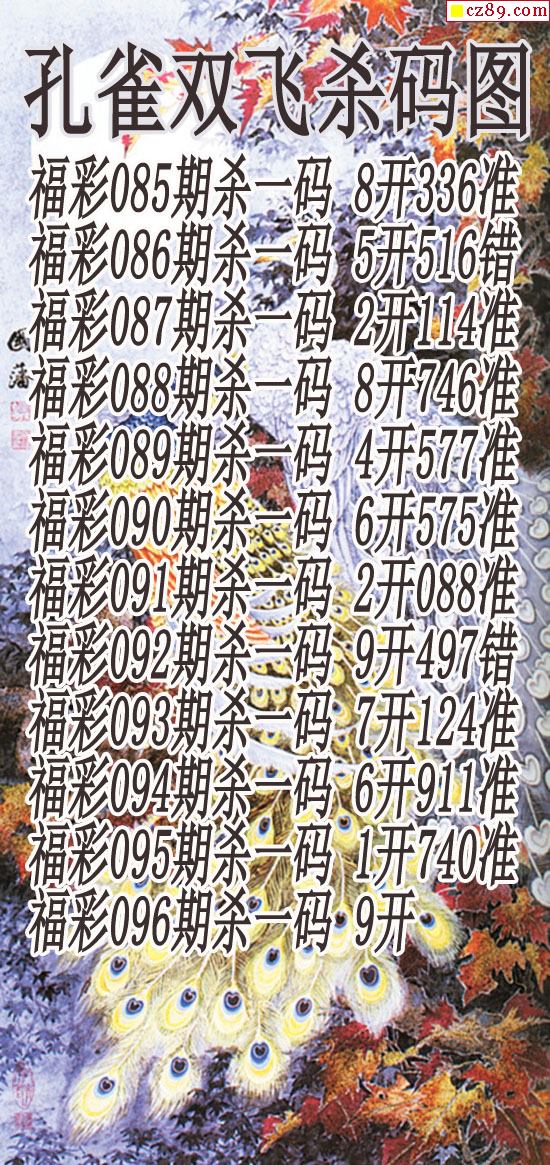 cz89.com
孔雀双飞杀码图
福彩085期杀一码 8开336准
福彩086期杀一码 5开516错
福彩087期杀一码 2开114准
福彩088期杀一码 8开746准
福彩089期杀一码 4开577准
福彩090期杀一码 6开575准
福彩091期杀一码 2开088准
福彩092期杀一码 9开497错
福彩093期杀一码 7开124准
福彩094期杀一码 6开911准
福彩095期杀一码 1开740准
福彩096期杀一码 9开